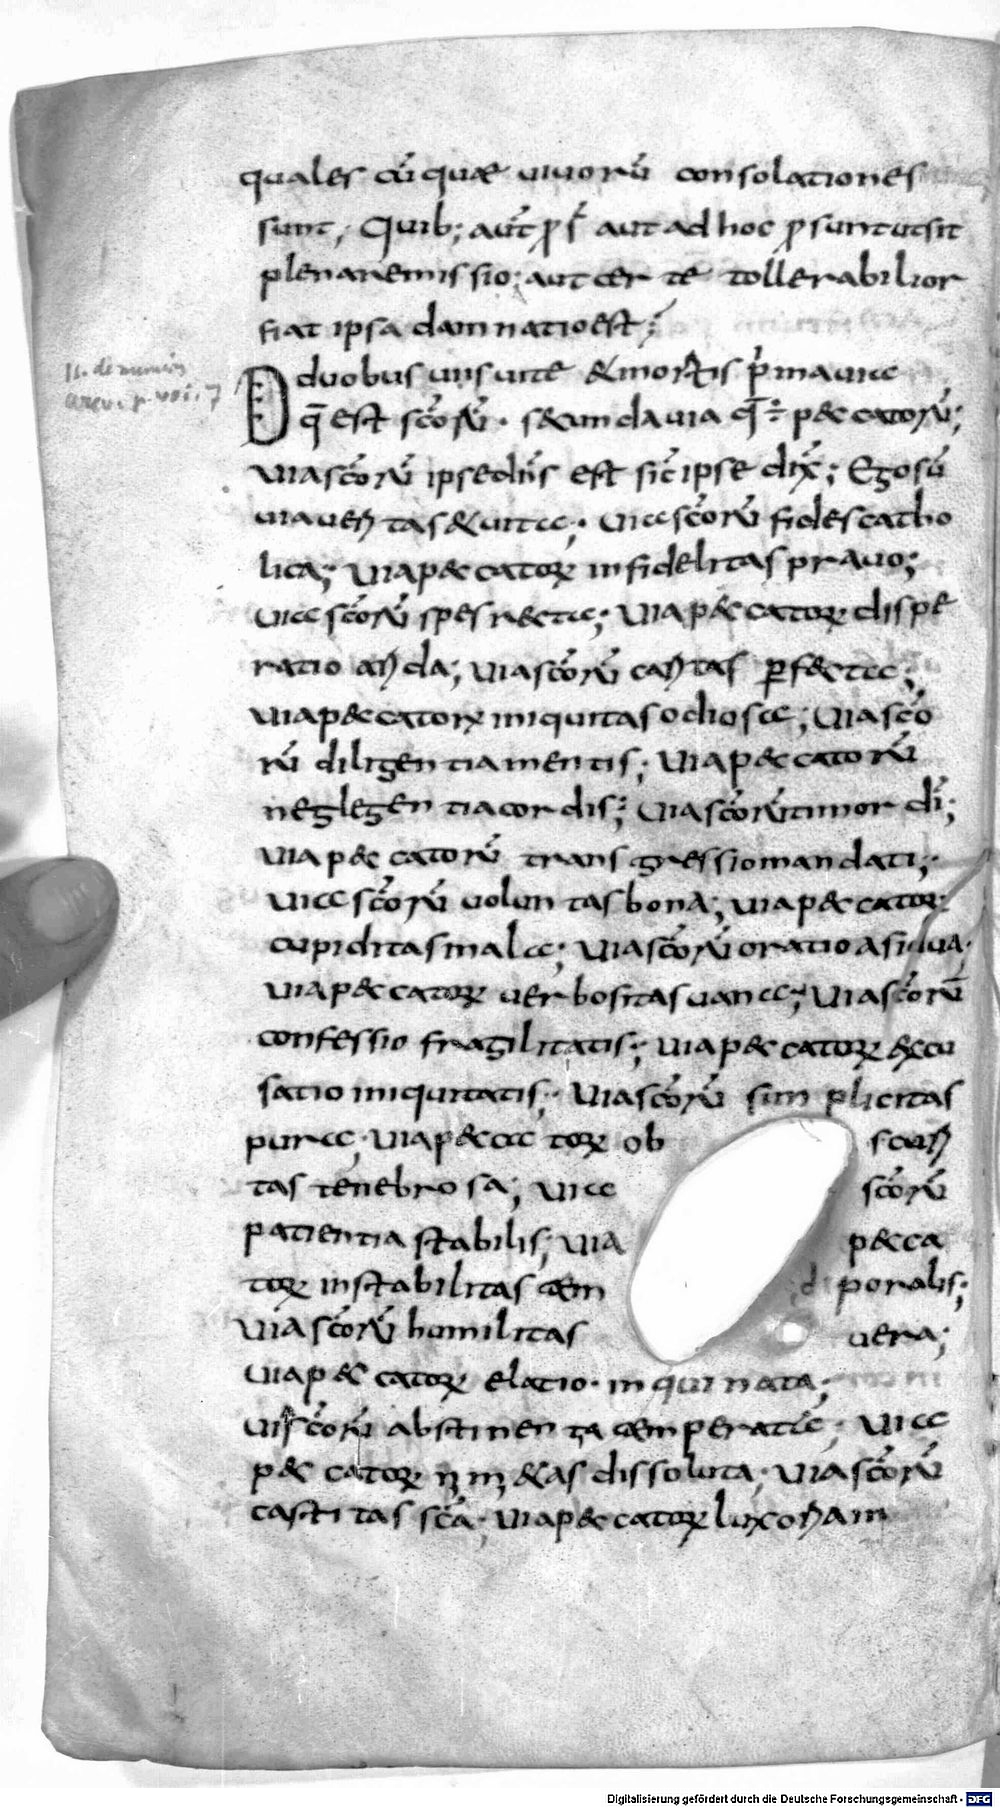 quales cū quae uiuorū consolationes
sunt; Quib; aūt ꝓs̄ aut ad hoc ꝓsunt ut sit
plena remissio; aut certe tollerabilior
fiat ipsa damnatio est;
De duobus uiis uite & mortis p̄ma uia
q̄ est sc̄orū · secunda uia q̄ ÷ peccatorū;
uia sc̄orū ipse dn̄s est sic̄ ipse dix̄; Ego sū
uia ueritas & uita; uia sc̄orū fides catho
lica; uia peccatoꝝ infidelitas prauo;
uia sc̄orū spes recta; uia peccatoꝝ dispe
ratio arida; uia sc̄orū caritas ꝑfecta;
uia peccatoꝝ iniquitas odiosa; uia sc̄o
rū diligentia mentis; uia peccatorū
neglegentia cordis; uia sc̄orū timor dī;
uia peccatorū transgressio mandati;
uia sc̄orū uoluntas bona; uia peccatoꝝ
cupiditas mala; uia sc̄orū oratio asidua·
uia peccatoꝝ uerbositas uana; uia sc̄orū
confessio fragilitatis; uia peccatoꝝ excu
satio iniquitatis; uia sc̄orū simplicitas
pura; uia peccatoꝝ ob scuri
tas tenebrosa; uia sc̄orū
patientia stabilis; uia pecca
toꝝ instabilitas tem poralis;
uia sc̄orū humilitas uera;
uia peccatoꝝ elatio inquinata;
uia sc̄orū abstinentia temperata; uia
peccatoꝝ dissoluta; uia sc̄orū
castitas sc̄a; uia peccatoꝝ luxoriam
Digitalisierung gefördert durch die Deutsche Forschungsgemeinschaft - DFG